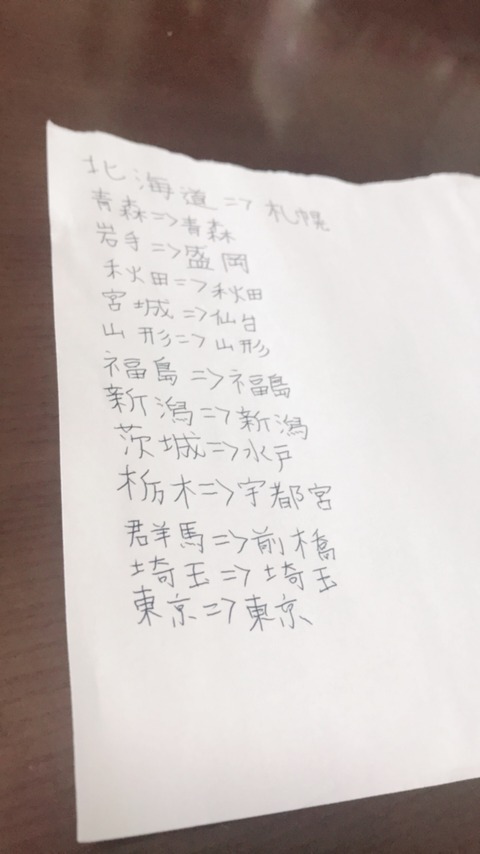 北海道=>札幌
青森=>青森
岩手=>盛岡
秋田=>秋田
宮城=>仙台
山形=>山形
福島=>福島
新潟=>新潟
茨城=>水戸
栃木=>宇都宮
群馬=>前橋
埼玉=>埼玉
東京=>東京